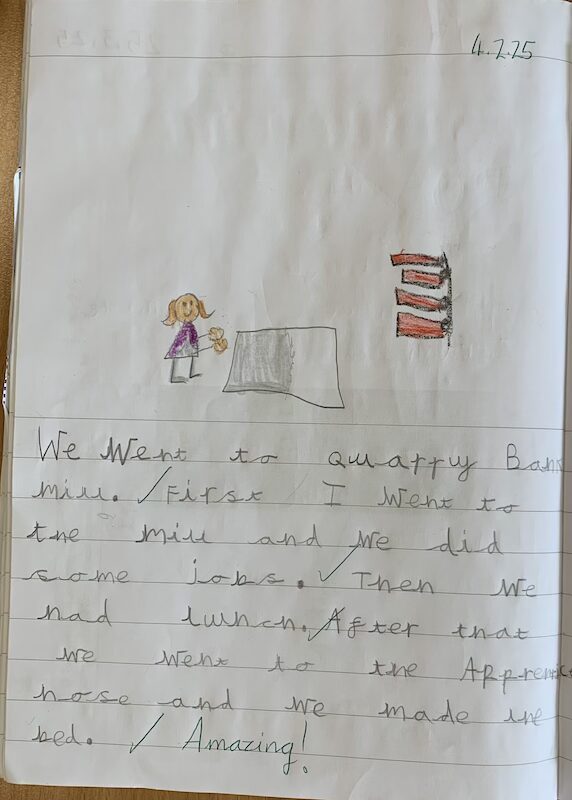 4.2.25
We Went to quarry Bank
mill. First I went to
the mill and We did
some jobs. Then We
had lunch. After that
We Went to the Appren
hose and We made the
bed. Amazing!